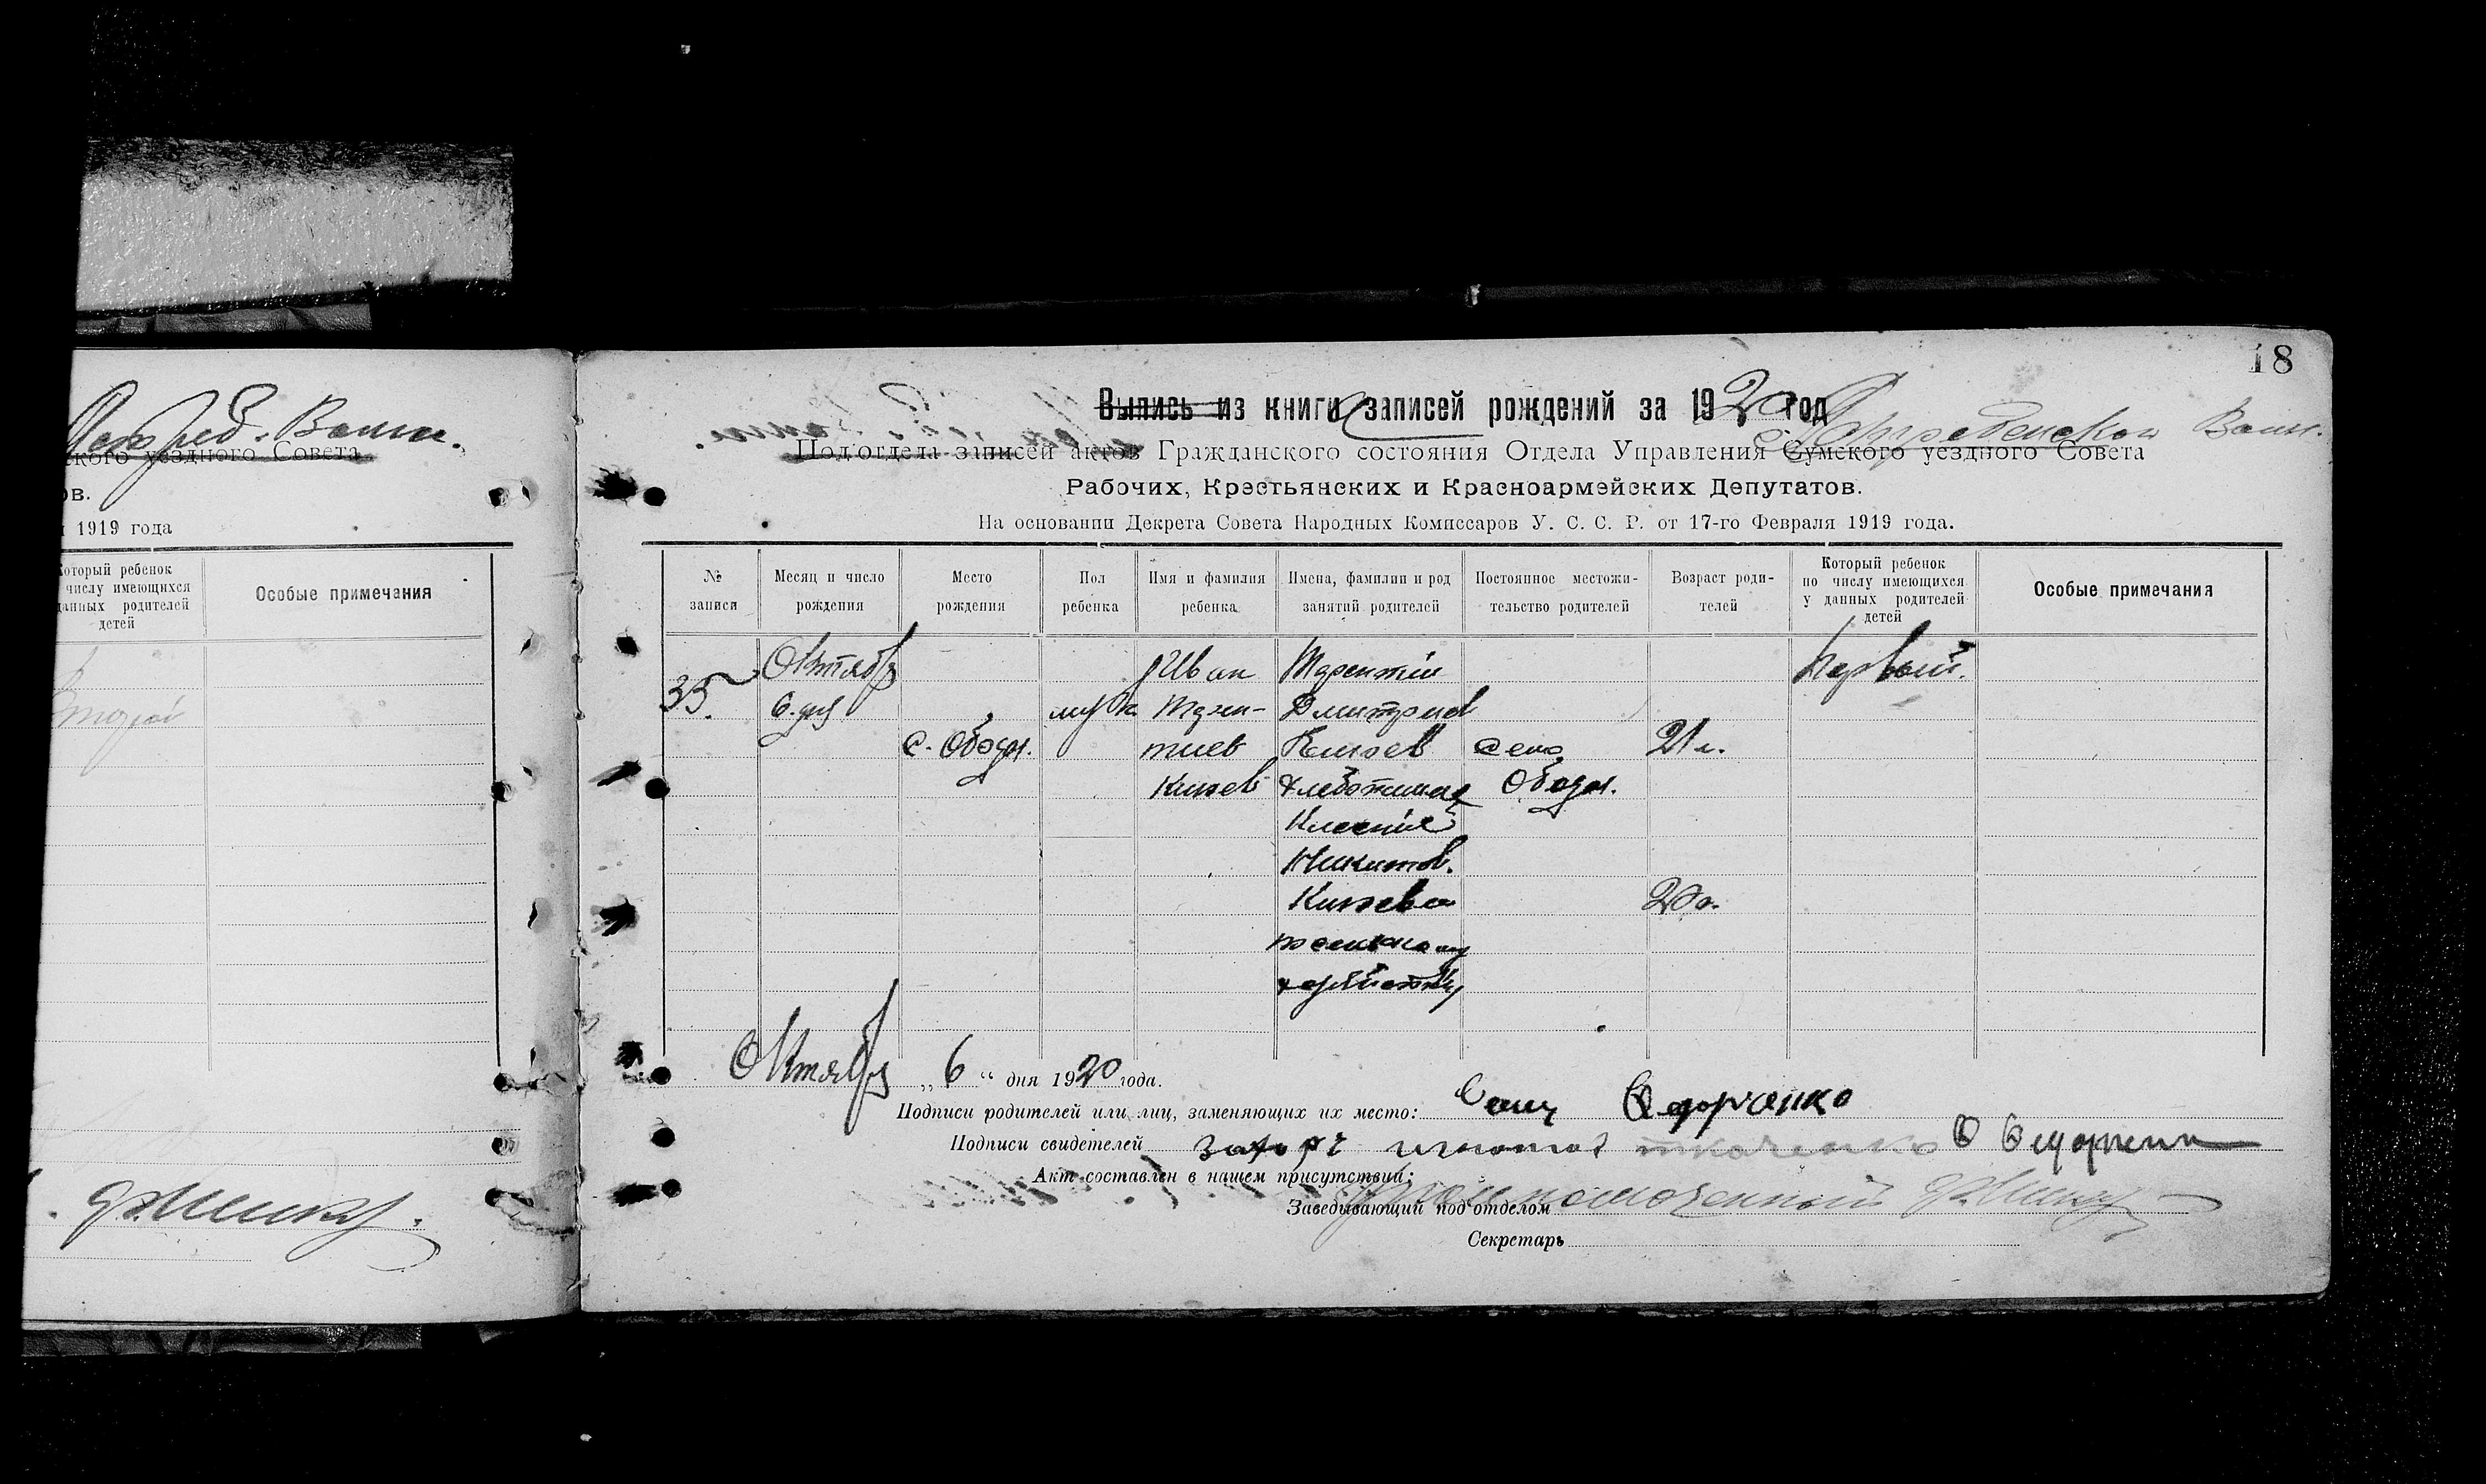 Волн.
ского уездного Совета
ов.
1919 года
Который ребенок
числу имеющихся
данных родителей
детей
Особые примечания
второй
18
Выпись из книги записей рождений за 1920 год
Волн.
Подотдела записей актов Гражданского состояния Отдела Управления Сумского уездного Совета
Рабочих, Крестьянских и Красноармейских Депутатов.
На основании Декрета Совета Народных Комиссаров У. С. С. Р. от 17-го Февраля 1919 года.
№ записи
Месяц и число рождения
Место рождения
Пол ребенка
Имя и фамилия ребенка
Имена, фамилии и род занятий родителей
Постоянное местожительство родителей
Возраст родителей
Который ребенок по числу имеющихся у данных родителей детей
Особые примечания
35.
Октябр
6. дня
с. Ободы.
муж
Иван
Терен-
тиев
Князев
Терентий
Дмитриев
Князев
хлебопашец
Ксения
Никитов.
Князева
село
Ободы.
21 л.
20 л.
первый.
Октябрь „6“ дня 1920 года.
Подписи родителей или лиц, заменяющих их место:
Подписи свидетелей захарг игнатов ткаченко
Акт составлен в нашем присутствии:
Заведывающий под'отделом Уполномоченный
Секретарь